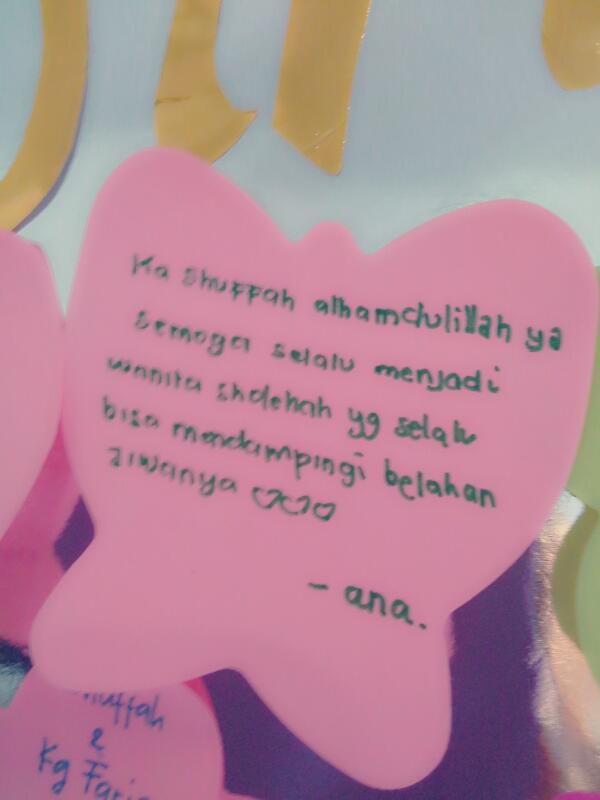 Ka Shuffah alhamdulillah ya
semoga selalu menjadi
wanita sholehah yg selalu
bisa mendampingi belahan
Jiwanya ♡♡♡
- ana.
huffah
&
Kg Faris